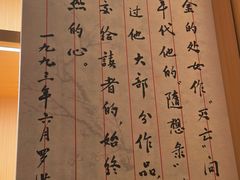 金的处女作“灭亡”问
年代他的“随想录”
过他大部分作品
交给读者的，始终
热的心。
一九九三年六月